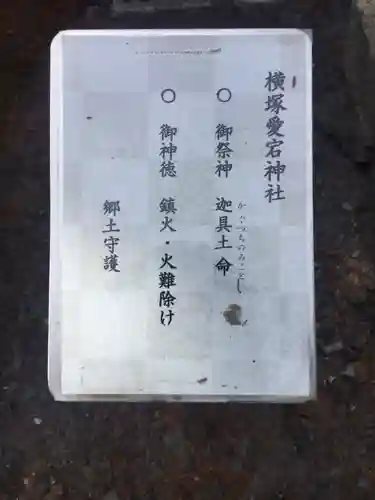 横塚愛宕神社
○ 御祭神 迦具土命
かぐつちのみこと
○ 御神徳 鎮火・火難除け
郷土守護